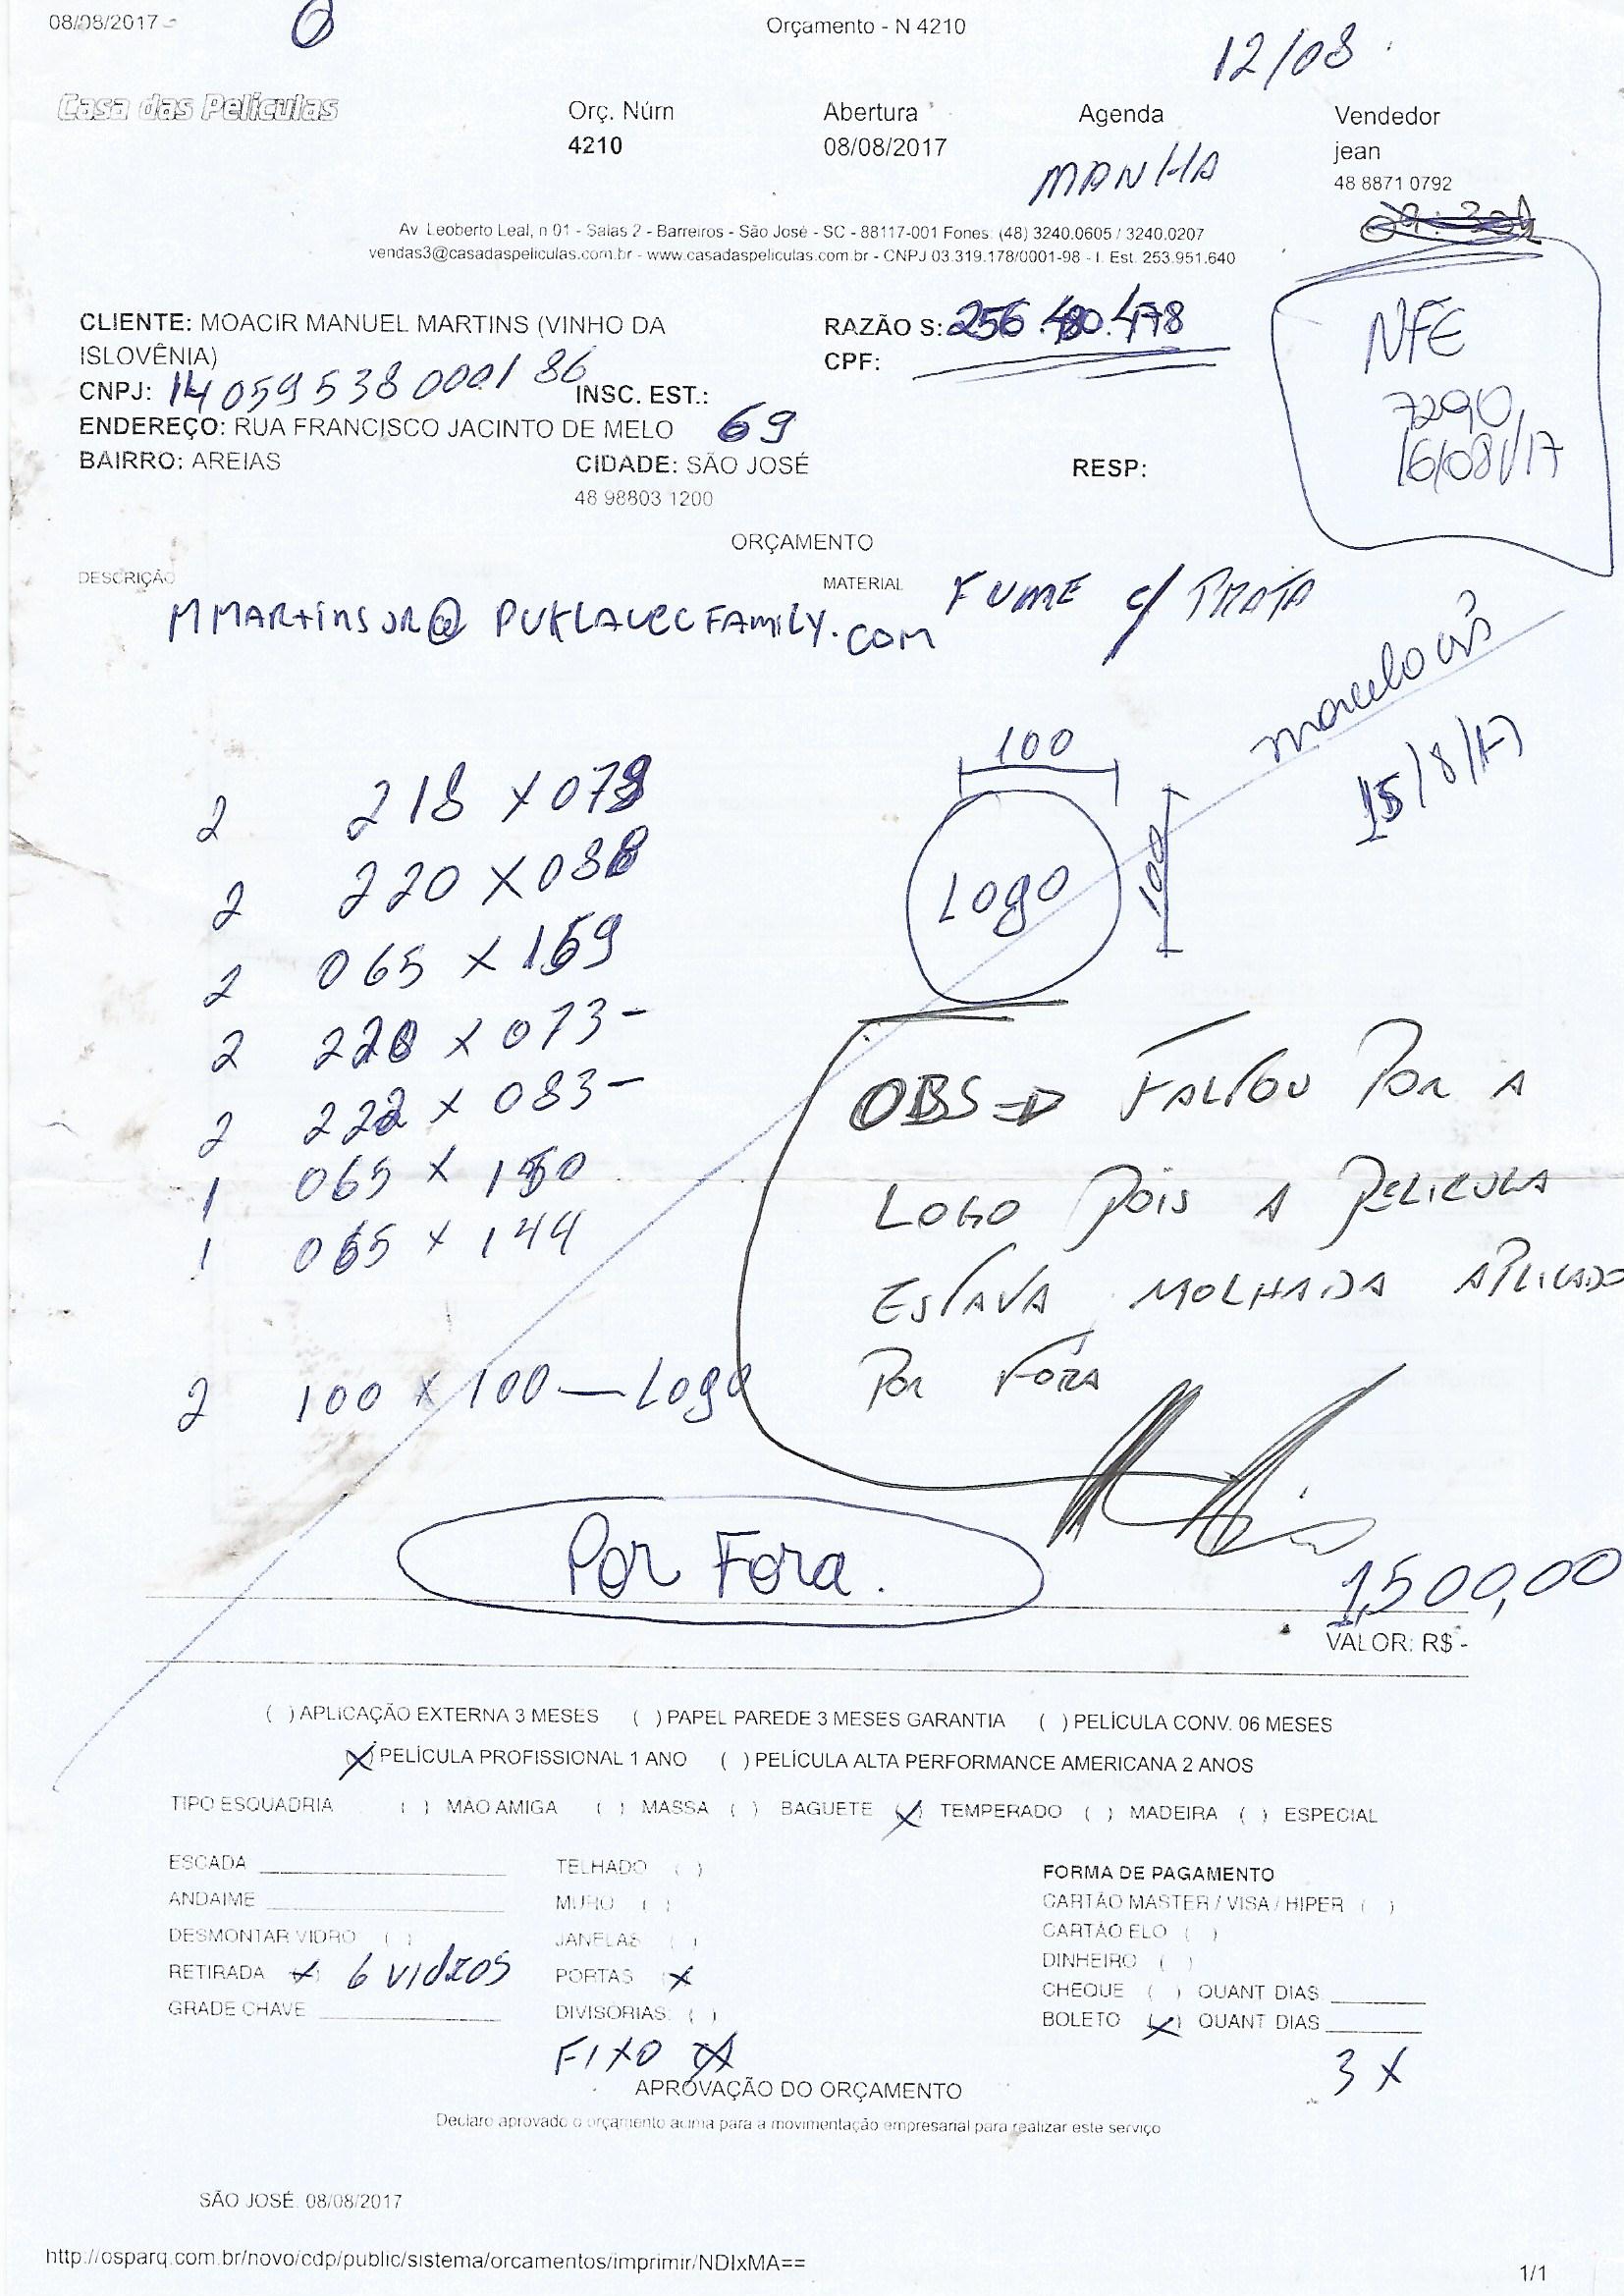 08/08/2017
Orçamento - N 4210
12/08
Casa das Películas
Orç. Núm
Abertura
Agenda
Vendedor
4210
08/08/2017
MANHA
jean
48 8871 0792
09:30h
Av. Leoberto Leal, n 01 - Salas 2 - Barreiros - São José - SC - 88117-001 Fones: (48) 3240.0605 / 3240.0207
vendas3@casadaspeliculas.com.br - www.casadaspeliculas.com.br - CNPJ 03.319.178/0001-98 - I. Est. 253.951.640
CLIENTE: MOACIR MANUEL MARTINS (VINHO DA
ISLOVÊNIA)
RAZÃO S: 256.480.478
CPF:
NFE
7290
16/08/17
CNPJ: 14 059 538 0001 86 INSC. EST.:
ENDEREÇO: RUA FRANCISCO JACINTO DE MELO 69
BAIRRO: AREIAS
CIDADE: SÃO JOSÉ
RESP:
48 98803 1200
ORÇAMENTO
DESCRIÇÃO
MATERIAL FUME c/ PRATA
MMARTINSJR@PUKLAVECFAMILY.COM
15/8/17
2 218 x 078
2 220 x 088
2 065 x 159
2 220 x 073 -
2 222 x 083 -
1 065 x 150
1 065 x 144
100
100
Logo
OBS => FALTOU POR A
LOGO POIS A PELICULA
ESTAVA MOLHADA APLICADO
POR FORA
2 100 x 100 — Logo
Por Fora.
1,500,00
VALOR: R$ -
( ) APLICAÇÃO EXTERNA 3 MESES ( ) PAPEL PAREDE 3 MESES GARANTIA ( ) PELÍCULA CONV. 06 MESES
(X) PELÍCULA PROFISSIONAL 1 ANO ( ) PELÍCULA ALTA PERFORMANCE AMERICANA 2 ANOS
TIPO ESQUADRIA ( ) MAO AMIGA ( ) MASSA ( ) BAGUETE (X) TEMPERADO ( ) MADEIRA ( ) ESPECIAL
ESCADA
ANDAIME
DESMONTAR VIDRO ( )
RETIRADA (X) 6 vidros
GRADE CHAVE
TELHADO ( )
MURO ( )
JANELAS ( )
PORTAS (X)
DIVISÓRIAS: ( )
FIXO (X)
FORMA DE PAGAMENTO
CARTÃO MASTER / VISA / HIPER ( )
CARTÃO ELO ( )
DINHEIRO ( )
CHEQUE ( ) QUANT DIAS
BOLETO (X) QUANT DIAS
3 X
APROVAÇÃO DO ORÇAMENTO
Declaro aprovado o orçamento acima para a movimentação empresarial para realizar este serviço
SÃO JOSÉ. 08/08/2017
http://osparq.com.br/novo/cdp/public/sistema/orcamentos/imprimir/NDIxMA==
1/1